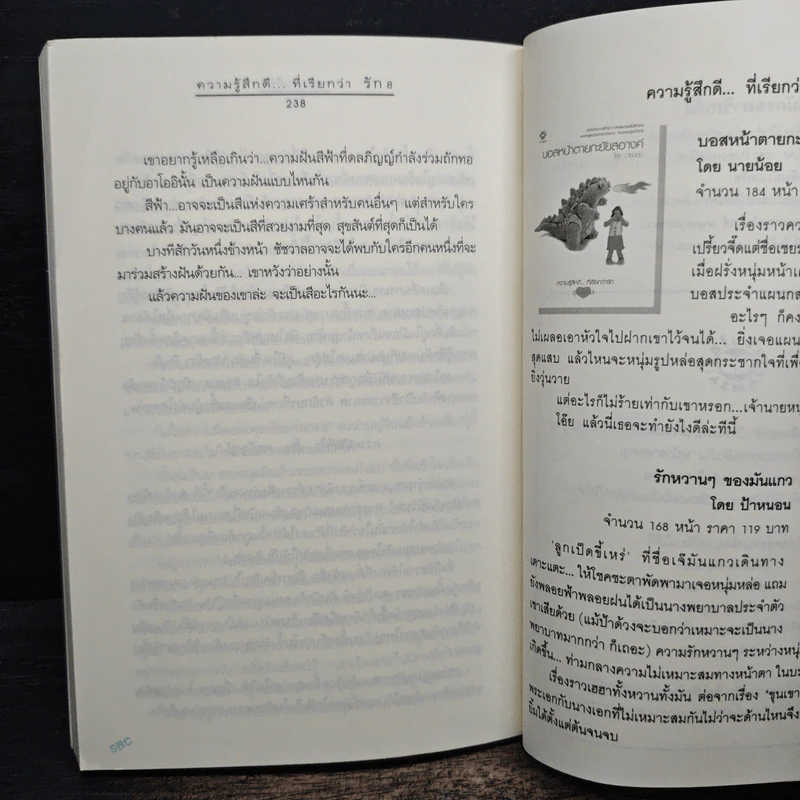 ความรู้สึกดี... ที่เรียกว่า รัก 8
238
เขาอยากรู้เหลือเกินว่า...ความฝันสีฟ้าที่ดลภิญญ์กำลังร่วมถักทอ
อยู่กับอาโออินั้น เป็นความฝันแบบไหนกัน
สีฟ้า...อาจจะเป็นสีแห่งความเศร้าสำหรับคนอื่นๆ แต่สำหรับใคร
บางคนแล้ว มันอาจจะเป็นสีที่สวยงามที่สุด สุขสันต์ที่สุดก็เป็นได้
บางทีสักวันหนึ่งข้างหน้า ชัชวาลอาจจะได้พบกับใครอีกคนหนึ่งที่จะ
มาร่วมสร้างฝันด้วยกัน... เขาหวังว่าอย่างนั้น
แล้วความฝันของเขาล่ะ จะเป็นสีอะไรกันนะ...
SBC
ความรู้สึกดี... ที่เรียกว่า
บอสหน้าตายกะยัยลอางค์
ความรู้สึกดี... ที่เรียกว่ารัก
บอสหน้าตายกะ
โดย นายน้อย
จำนวน 184 หน้า
เรื่องราวคว
เปรี้ยวจี๊ดแต่ชื่อเชย
เมื่อฝรั่งหนุ่มหน้าเ
บอสประจำแผนก
อะไรๆ ก็คง
ไม่เผลอเอาหัวใจไปฝากเขาไว้จนได้... ยิ่งเจอแผน
สุดแสบ แล้วไหนจะหนุ่มรูปหล่อสุดกระชากใจที่เพื่
ยิ่งวุ่นวาย
แต่อะไรก็ไม่ร้ายเท่ากับเขาหรอก...เจ้านายหน
โอ๊ย แล้วนี่เธอจะทำยังไงดีล่ะทีนี้
รักหวานๆ ของมันแกว
โดย ป้าหนอน
จำนวน 168 หน้า ราคา 119 บาท
'ลูกเป็ดขี้เหร่' ที่ชื่อเจ๊มันแกวเดินทาง
เตาะแตะ... ให้โชคชะตาพัดพามาเจอหนุ่มหล่อ แถม
ยังพลอยฟ้าพลอยฝนได้เป็นนางพยาบาลประจำตัว
เขาเสียด้วย (แม้ป้าด้วงจะบอกว่าเหมาะจะเป็นนาง
พยาบาทมากกว่า ก็เถอะ) ความรักหวานๆ ระหว่างหนุ่
เกิดขึ้น... ท่ามกลางความไม่เหมาะสมทางหน้าตา ในบ
เรื่องราวเฮฮาทั้งหวานทั้งมัน ต่อจากเรื่อง 'ขุนเขา
พระเอกกับนางเอกที่ไม่เหมาะสมกันไม่ว่าจะด้านไหนจึง
ยิ้มได้ตั้งแต่ต้นจนจบ